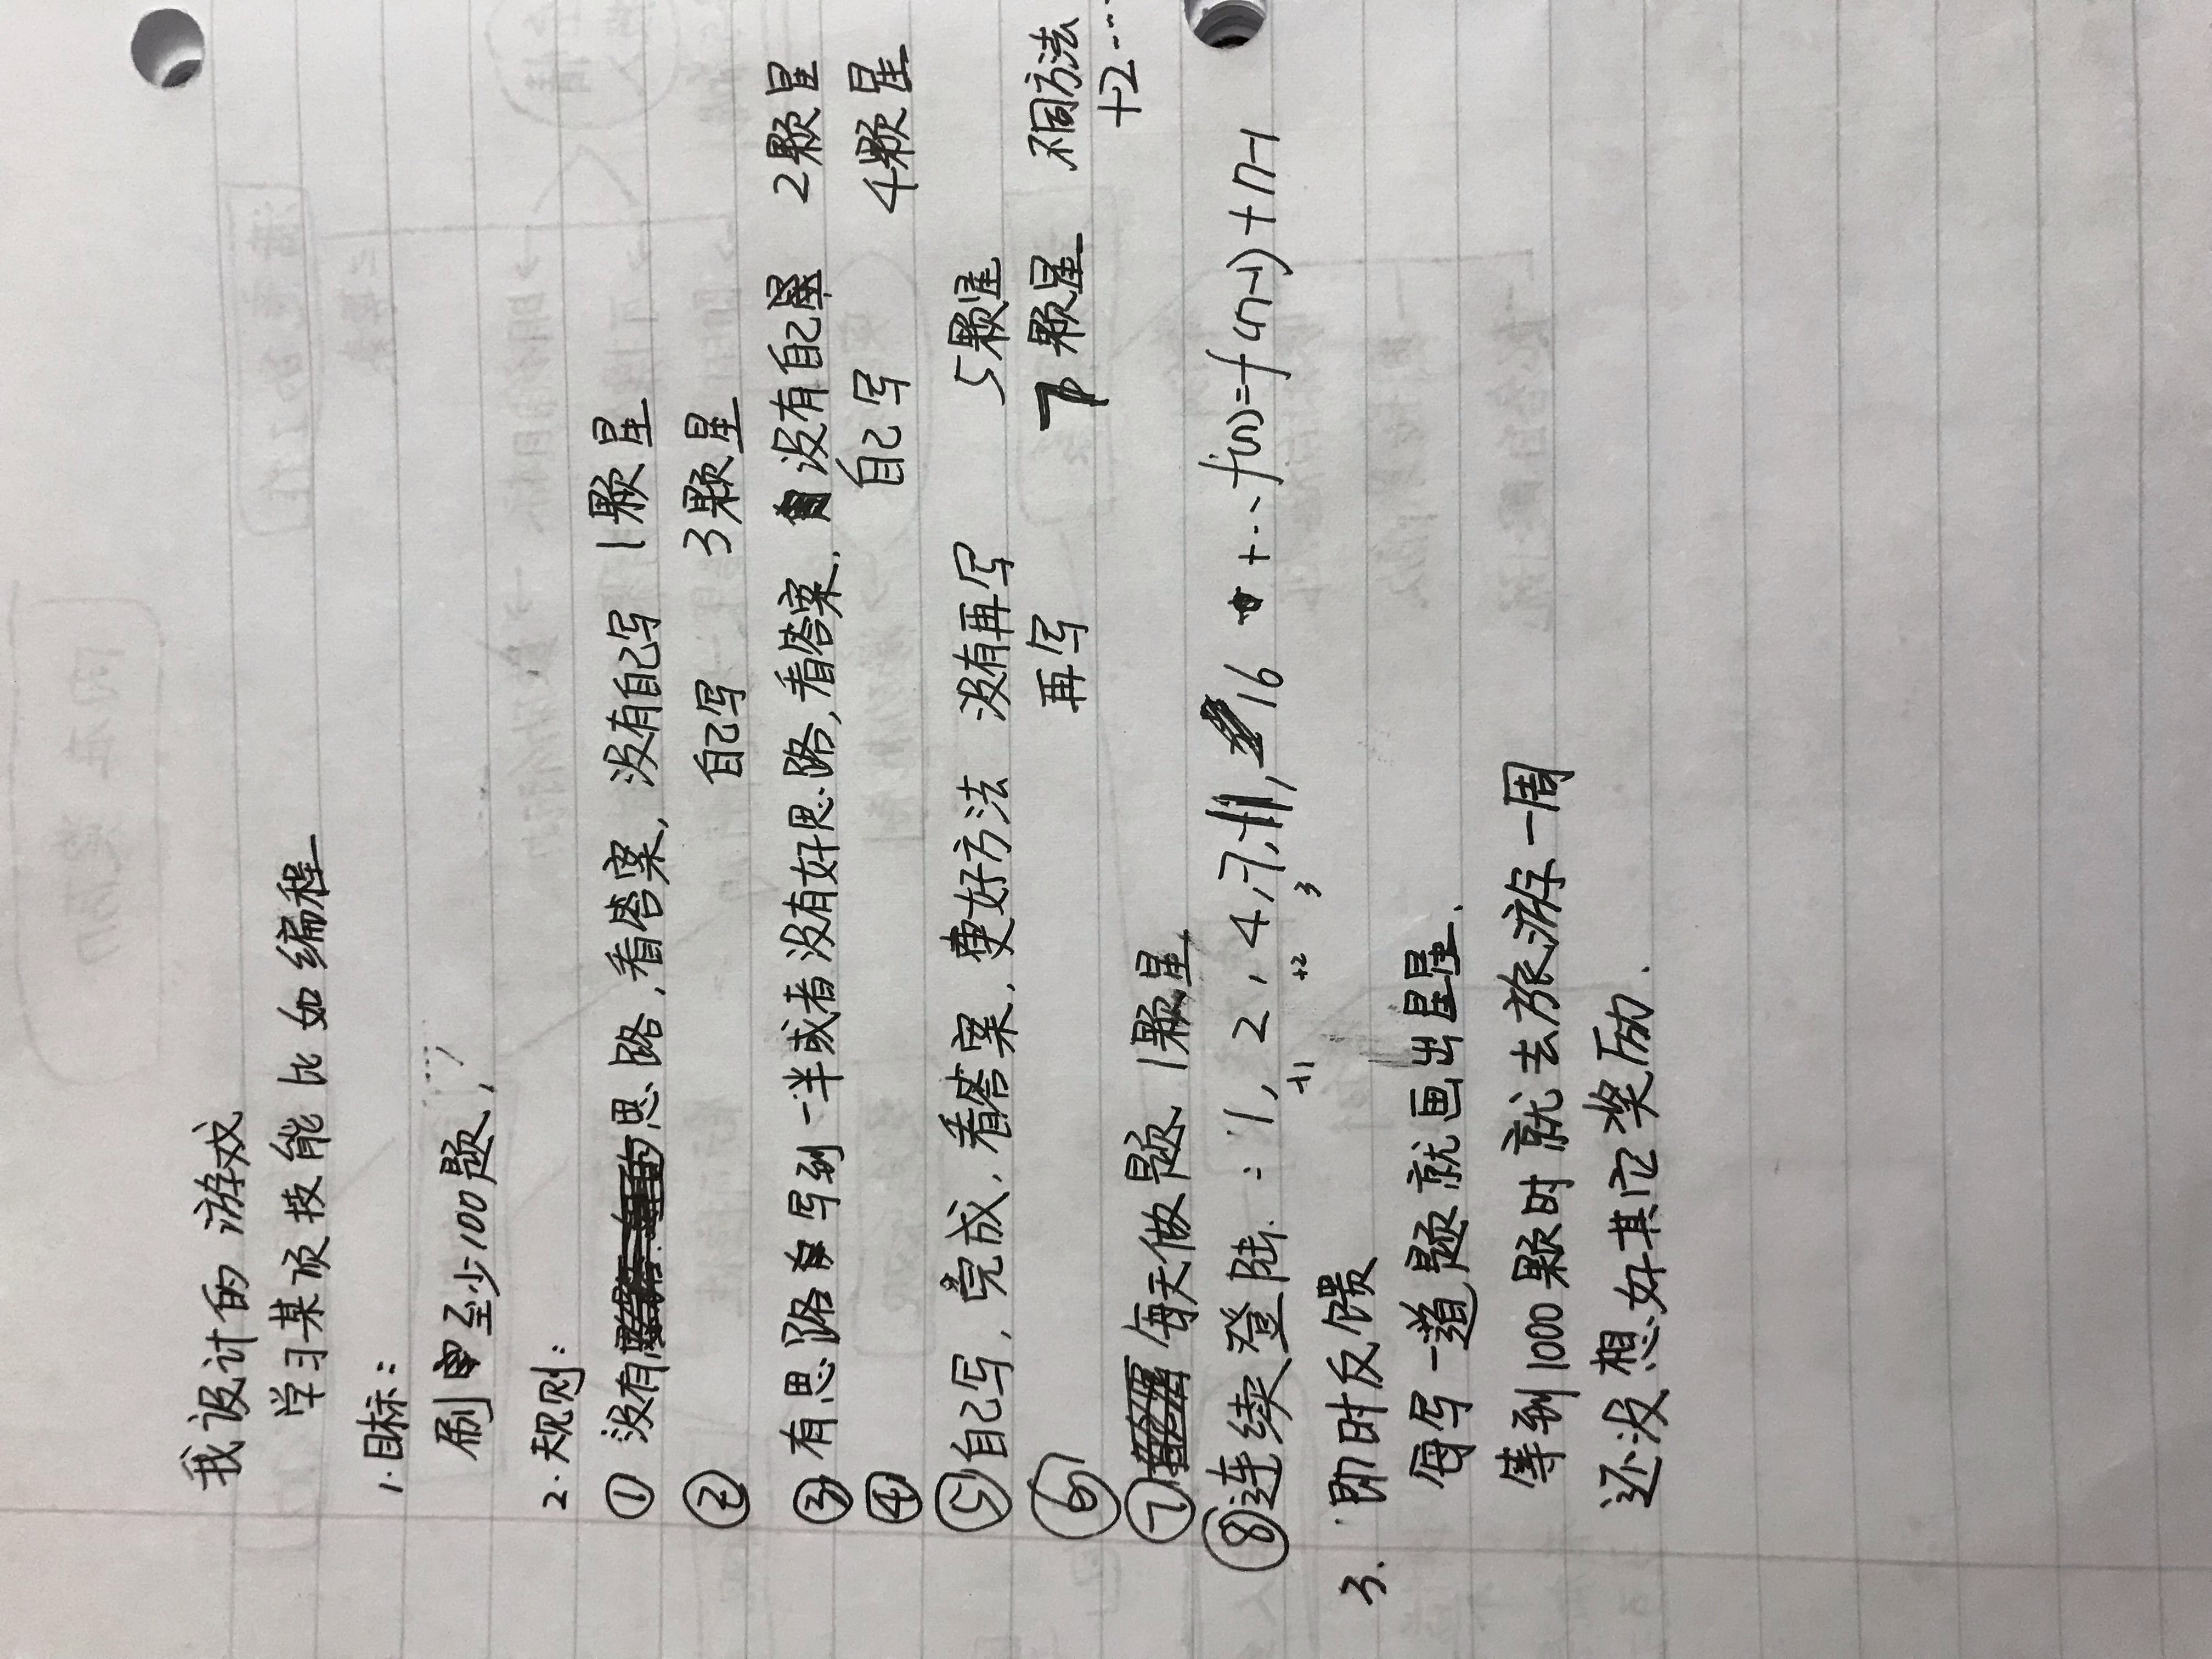 我设计的 游戏
学习某项技能 比如编程
1. 目标：
刷 至少100题，
2. 规则：
① 没有思路，看答案，没有自己写 1颗星
② 自己写 3颗星
③ 有思路 写到一半或者没有好思路，看答案，没有自己写 2颗星
④ 自己写 4颗星
⑤ 自己写，完成，看答案，更好方法 没有再写 5颗星
⑥ 再写 7颗星 不同方法
+2…
⑦ 每天做题 1颗星
⑧ 连续登陆：1, 2, 4, 7, 11, 16 +… f(n)=f(n-1)+n-1
+1 +2 3
3. 即时反馈
每写一道题就画出星星.
等到1000颗时就去旅游一周
还没想好其它奖励.